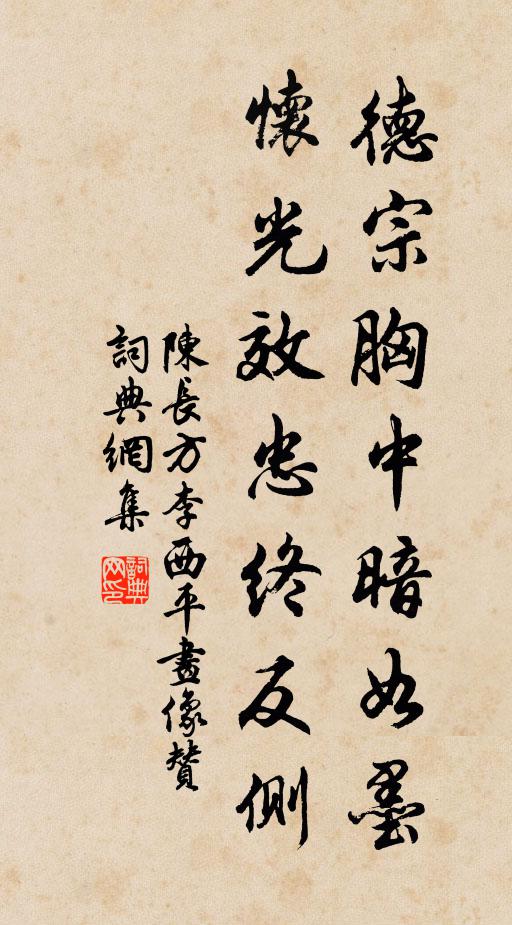 德宗胸中暗如墨
懷光效忠終反側
陳長方李西平畫像贊
詞典網集
詞典网印